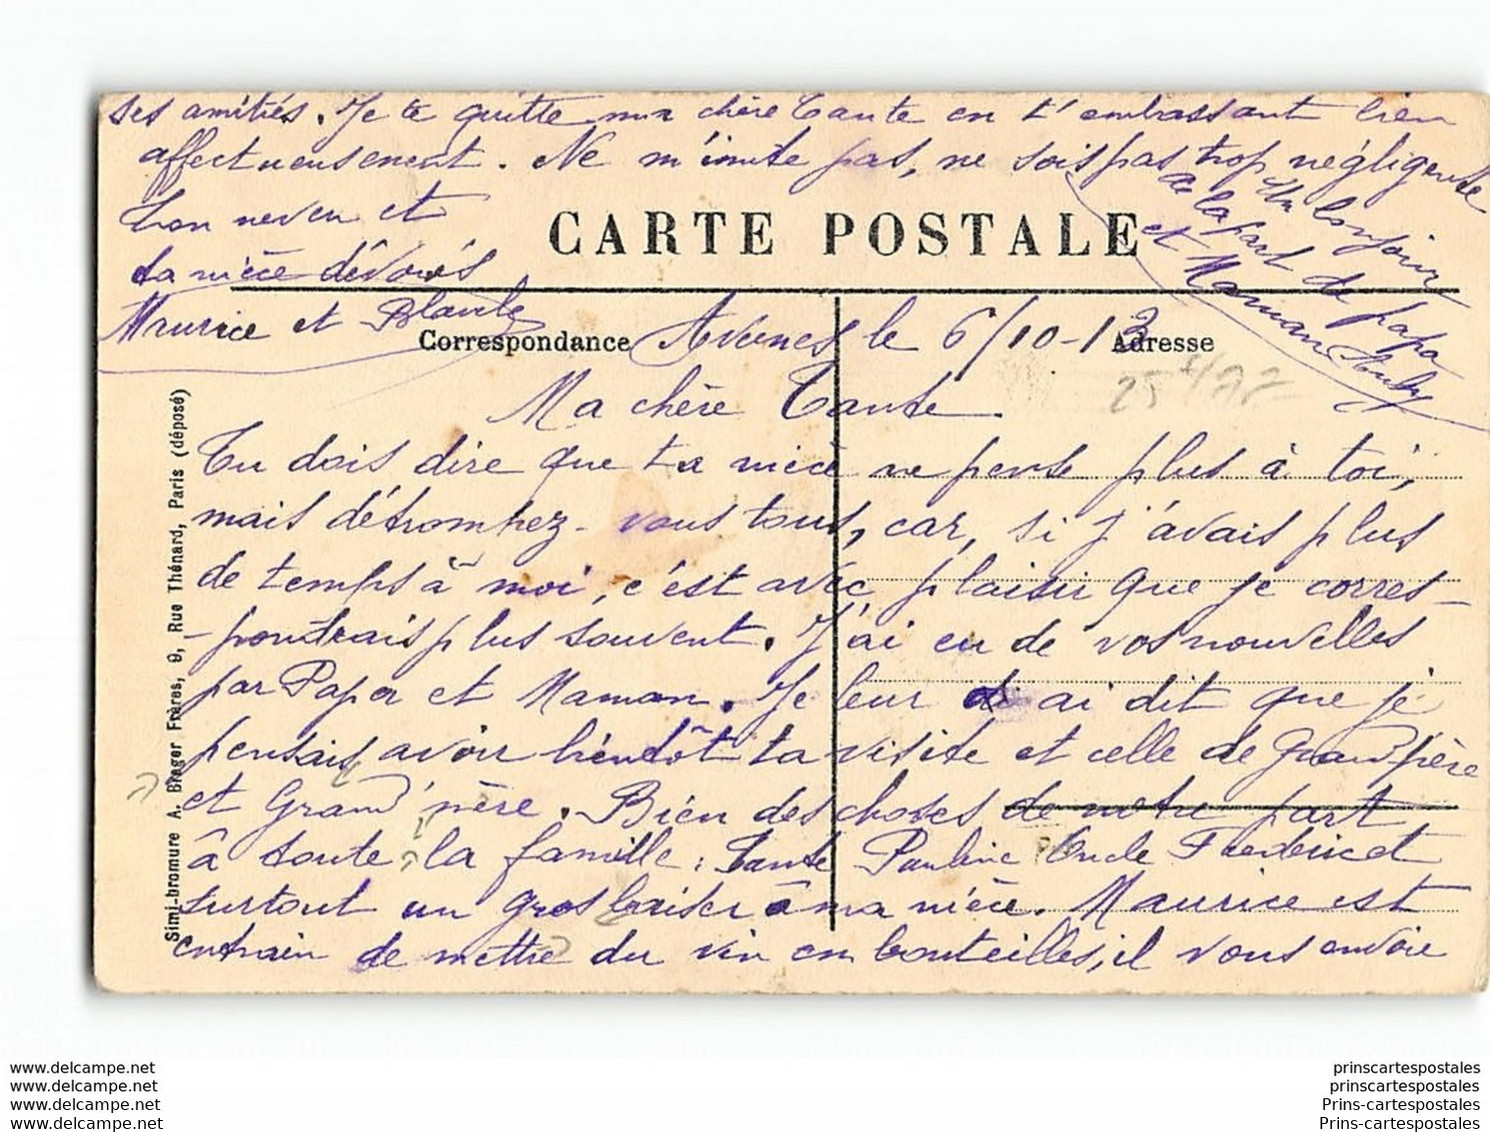 CARTE POSTALE
Correspondance
Adresse
Avesnes le 6/10-13
Ma chère Tante.
Tu dois dire que ta nièce ne pense plus à toi,
mais détrompez-vous tous, car, si j'avais plus
de temps à moi, c'est avec plaisir que je corres-
-pondrais plus souvent. J'ai eu de vos nouvelles
par Papa et Maman. Je leur ai dit que je
pensais avoir bientôt ta visite et celle de Grand'père
et Grand'mère. Bien des choses de notre part
à toute la famille, Tante Pauline Oncle Frederic et
surtout un gros baiser à ma nièce. Maurice est
entrain de mettre du vin en bouteilles, il vous envoie
ses amitiés. Je te quitte ma chère Tante en t'embrassant bien
affectueusement. Ne m'imite pas, ne sois pas trop négligente
Ton neveu et
ta nièce dévoués
Maurice et Blanche
Un bonjour
de la part de papa
et Maman
Simi-bromure A. Breger Frères, 9, Rue Thénard, Paris (déposé)
www.delcampe.net
www.delcampe.net
www.delcampe.net
www.delcampe.net
prinscartespostales
prinscartespostales
Prins-cartespostales
Prins-cartespostales